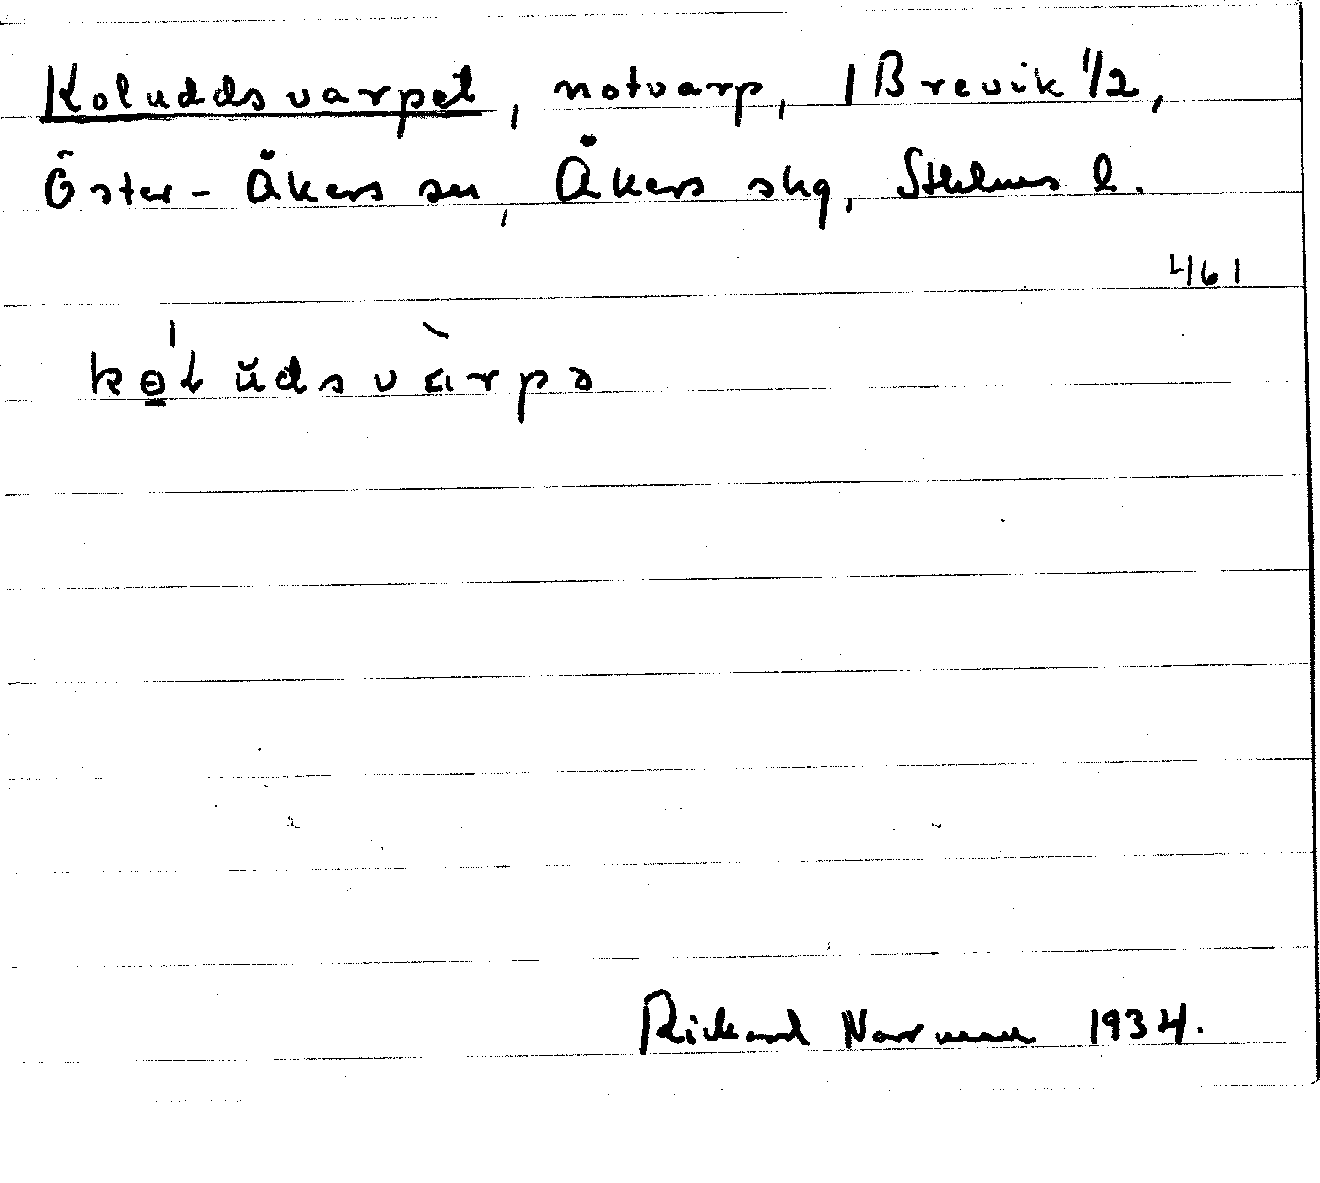 Koluddsvarpet, notvarp, 1 Brevik 1/2,
Öster-Åkers sn, Åkers skg, Sthlms l.
461
kɵ̱́ł ŭdsvàrpə
Rickard Norrman 1934.